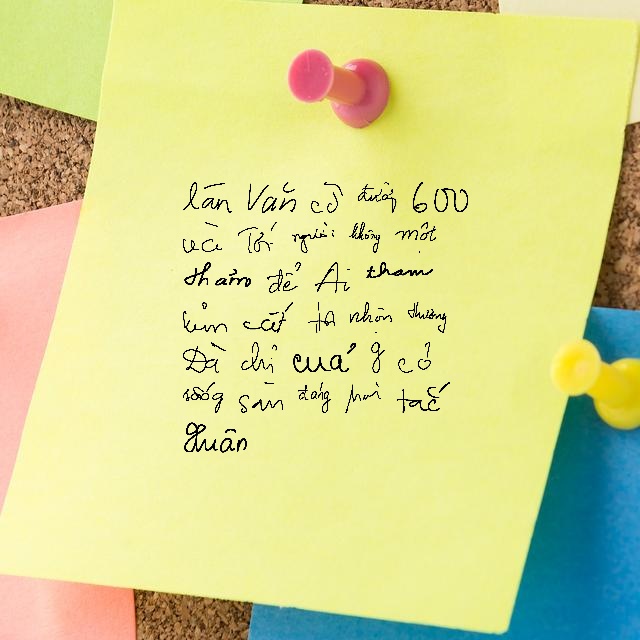 lần Văn cò đười 600
và Tới người không một
tham để Ai tham
kim cất ta nhận thương
Đà chỉ cuả g cỏ
sống sàn đáng hơi tấc
Xuân